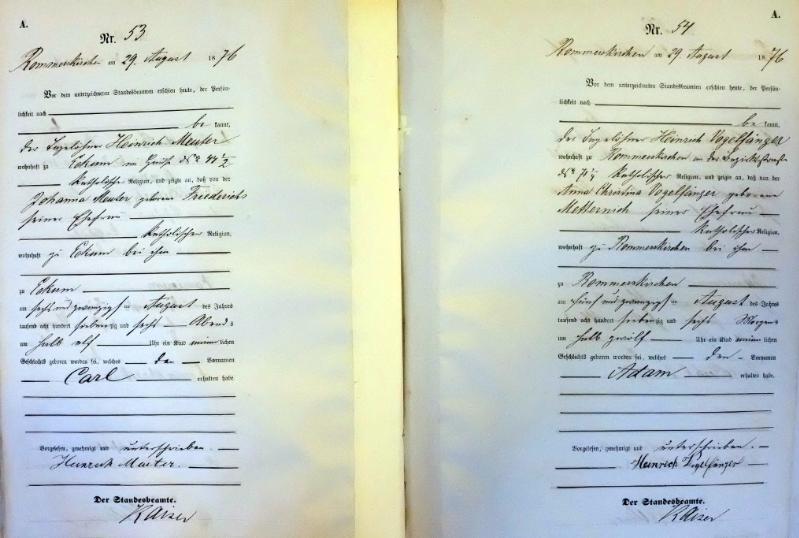 A.
Nr. 53
Rommerskirchen am 29. August 1876
Vor dem unterzeichneten Standesbeamten erschien heute, der Persön-
lichkeit nach
be kannt,
der Tagelöhner Heinrich Meuter
wohnhaft zu Eckum
katholischer Religion, und zeigte an, daß von der
Johanna Meuter geborene Friederichs
seiner Ehefrau
katholischer Religion,
wohnhaft zu Eckum bei ihm
zu Eckum
am sechs und zwanzigsten August des Jahres
tausend acht hundert siebenzig und sechs Abends
um halb elf Uhr ein Kind männlichen
Geschlechts geboren worden sei, welches den Vornamen
Carl erhalten habe.
Vorgelesen, genehmigt und unterschrieben.
Heinrich Meuter
Der Standesbeamte.
Kaiser
A.
Nr. 54
Rommerskirchen am 29. August 1876
Vor dem unterzeichneten Standesbeamten erschien heute, der Persön-
lichkeit nach
be kannt,
der Tagelöhner Heinrich Vogelfänger
wohnhaft zu Rommerskirchen an der Bezirksstraße
katholischer Religion, und zeigte an, daß von der
Anna Christina Vogelfänger geborene
Metternich seiner Ehefrau
katholischer Religion,
wohnhaft zu Rommerskirchen bei ihm
zu Rommerskirchen
am fünf und zwanzigsten August des Jahres
tausend acht hundert siebenzig und sechs Morgens
um halb zwölf Uhr ein Kind männlichen
Geschlechts geboren worden sei, welches den Vornamen
Adam erhalten habe.
Vorgelesen, genehmigt und unterschrieben.
Heinrich Vogelfänger
Der Standesbeamte.
Kaiser